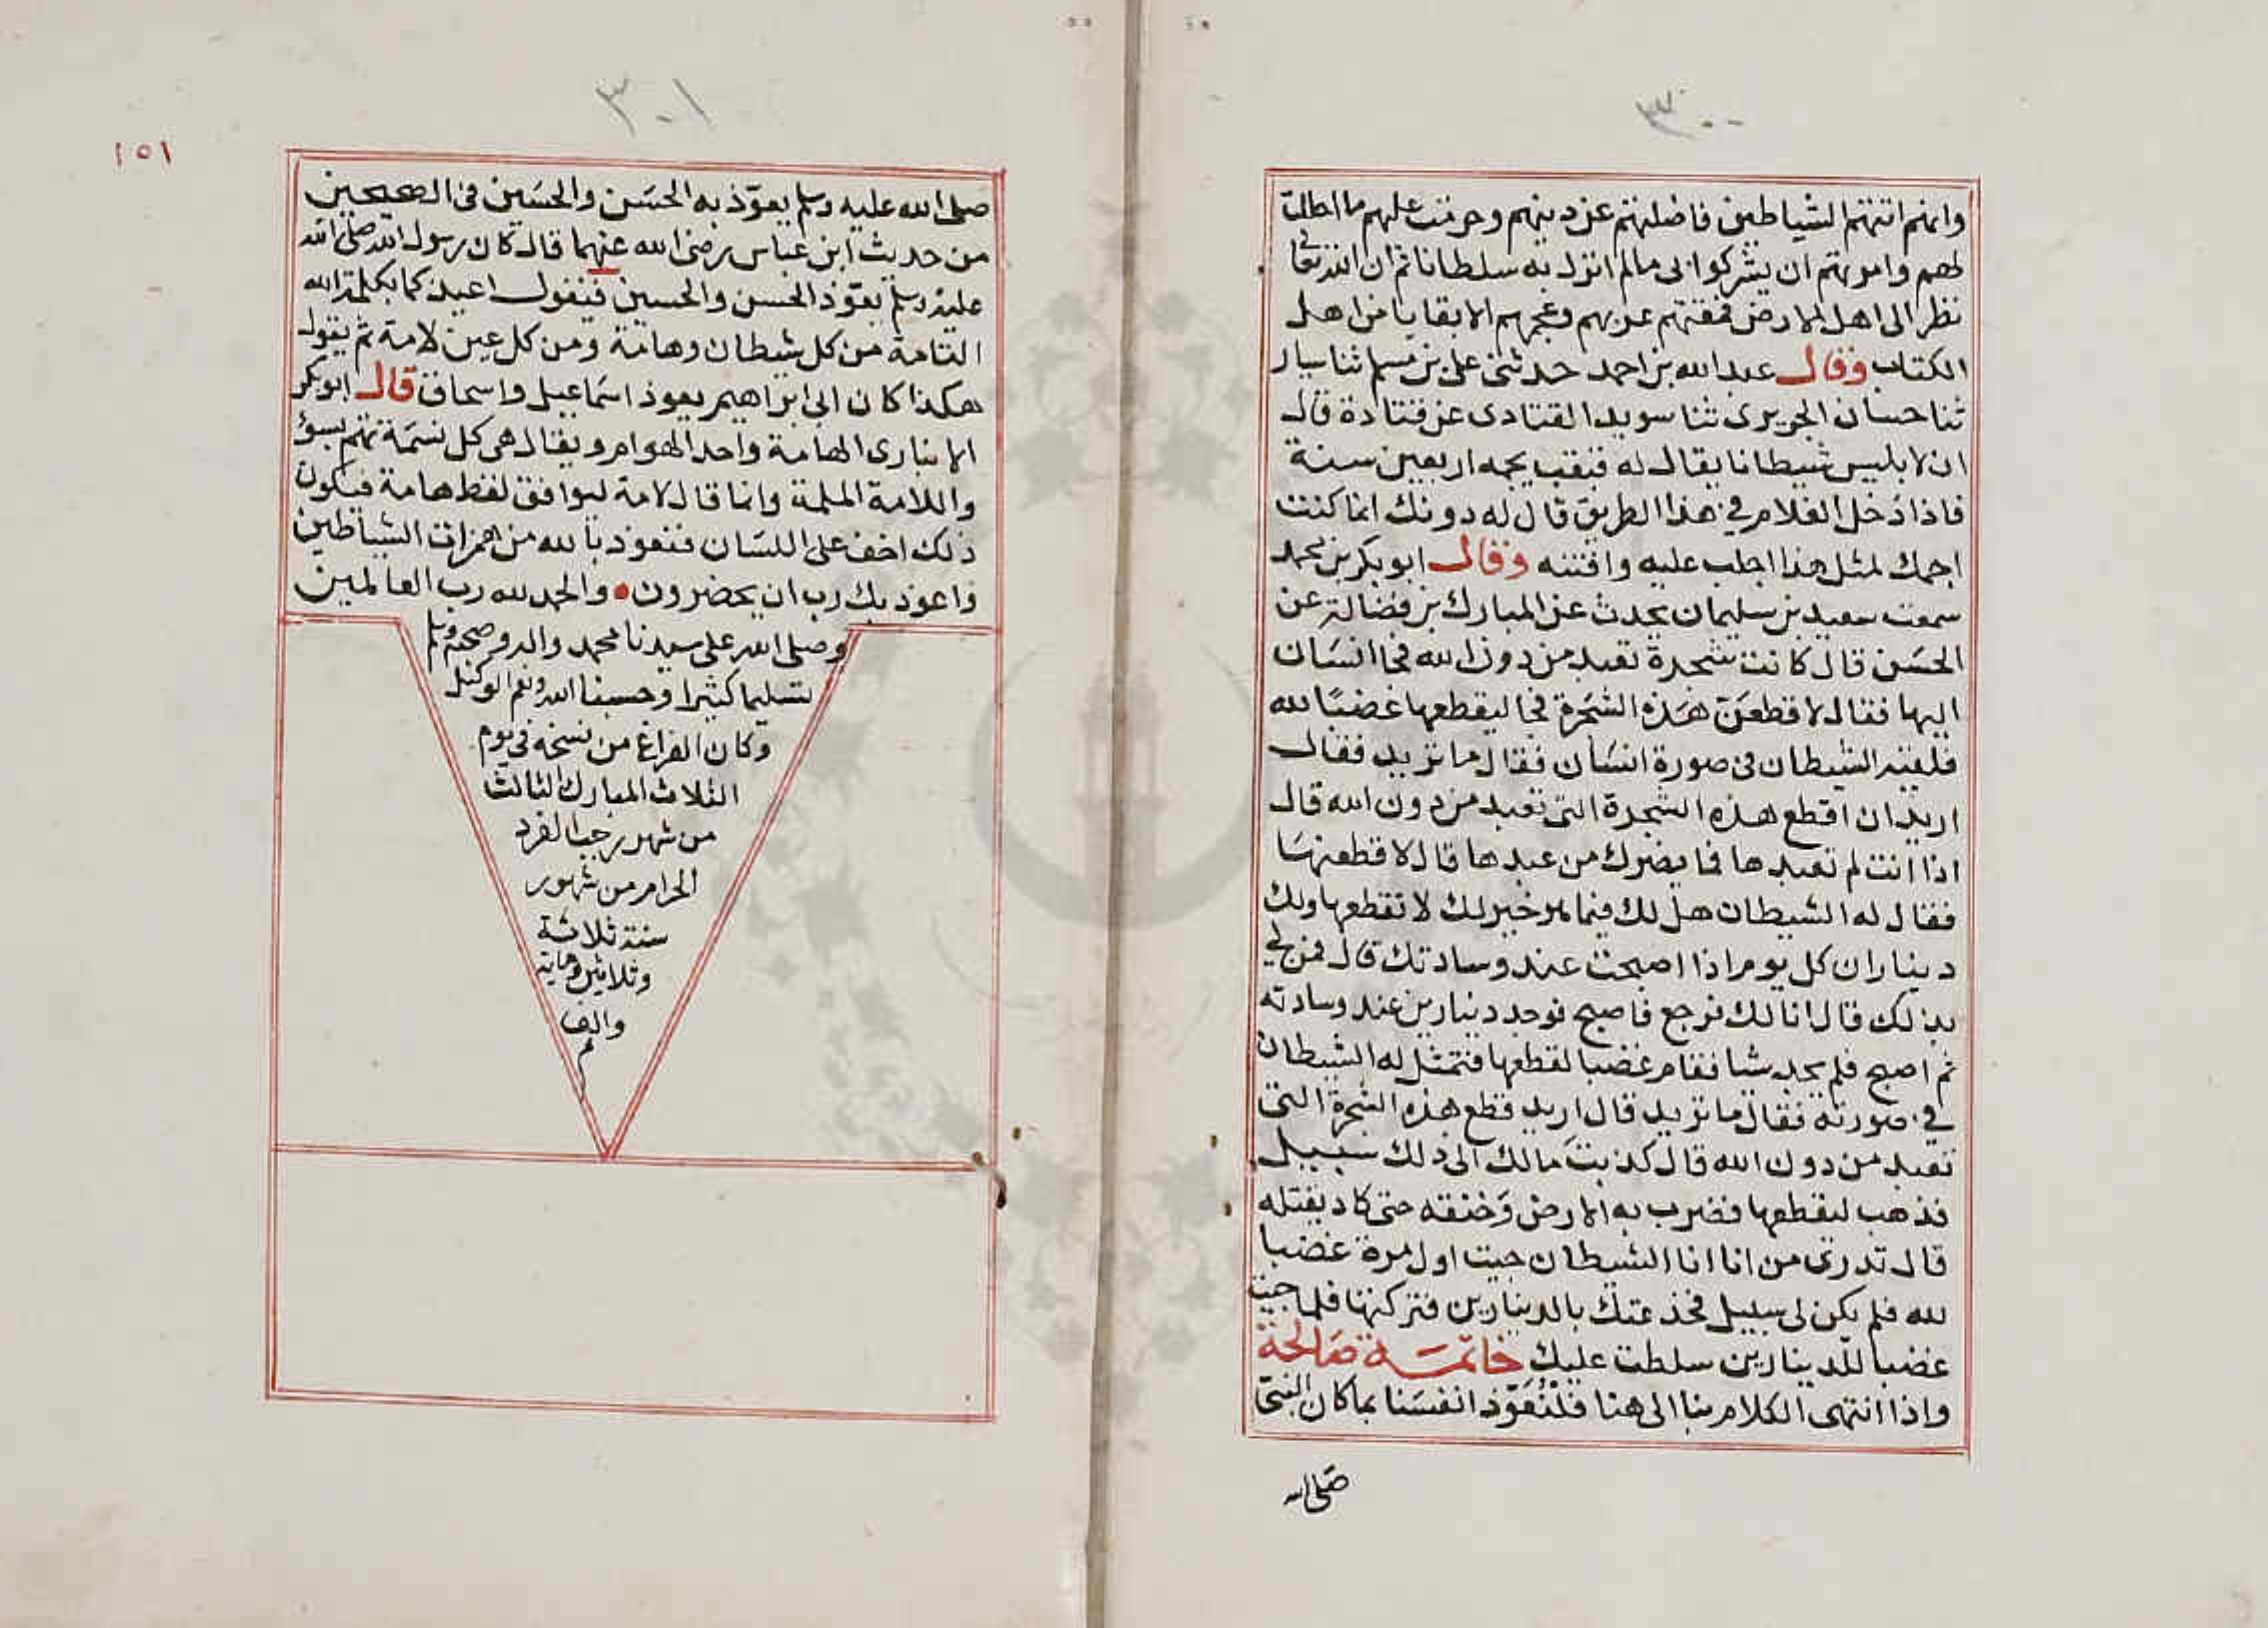 ٣٠٠
وانهم اتتهم الشياطين فاضلتهم عن دينهم وحرمت عليهم ما احللت
لهم وامرتهم ان يشركوا بى مالم انزل به سلطانا ثم ان الله تعالى
نظر الى اهل الارض فمقتهم عربهم وعجمهم الا بقايا من اهل
الكتاب وقال عبد الله بن احمد حدثنى على بن مسلم ثنا سيار
ثنا حسان الجريرى ثنا سويد القتادى عن قتادة قال
ان لابليس شيطانا يقال له قبقب يجمه اربعين سنة
فاذا دخل الغلام في هذا الطريق قال له دونك انما كنت
اجمك لمثل هذا اجلب عليه وافتنه وقال ابو بكر بن محمد
سمعت سعيد بن سليمان يحدث عن المبارك بن فضالة عن
الحسن قال كانت شجرة تعبد من دون الله فجا انسان
اليها فقال لاقطعن هذه الشجرة فجا ليقطعها غضبا لله
فلقيه الشيطان فى صورة انسان فقال ما تريد فقال
اريد ان اقطع هذه الشجرة التى تعبد من دون الله قال
اذا انت لم تعبدها فما يضرك من عبدها قال لاقطعنها
فقال له الشيطان هل لك فيما هو خير لك لا تقطعها ولك
ديناران كل يوم اذا اصبحت عند وسادتك قال فمن لي
بذلك قال انا لك فرجع فاصبح فوجد دينارين عند وسادته
ثم اصبح فلم يجد شيا فقام غضبا لقطعها فتمثل له الشيطان
في صورته فقال ما تريد قال اريد قطع هذه الشجرة التى
تعبد من دون الله قال كذبت مالك الى ذلك سبيل
فذهب ليقطعها فضرب به الارض وخنقه حتى كاد يقتله
قال تدرى من انا انا الشيطان جيت اول مرة غضبا
لله فلم يكن لى سبيل فخدعتك بالدينارين فتركتها فلما جيت
غضبا للدينارين سلطت عليك خاتمة صالحة
واذا انتهى الكلام بنا الى هنا فلنعوذ انفسنا بما كان النبى
صلى الله
٣٠١
١٥١
صلى الله عليه وسلم يعوذ به الحسن والحسين فى الصحيحين
من حديث ابن عباس رضى الله عنهما قال كان رسول الله صلى الله
عليه وسلم يعوذ الحسن والحسين فيقول اعيذكما بكلمة الله
التامة من كل شيطان وهامة ومن كل عين لامة ثم يقول
هكذا كان ابى ابراهيم يعوذ اسماعيل واسحاق قال ابو بكر
الانبارى الهامة واحد الهوام ويقال هى كل نسمة تهم بسوء
واللامة الملمة وانما قال لامة ليوافق لفظ هامة فيكون
ذلك اخف على اللسان فنعوذ بالله من همزات الشياطين
واعوذ بك رب ان يحضرون والحمد لله رب العالمين
وصلى الله على سيدنا محمد واله وصحبه وسلم
تسليما كثيرا وحسبنا الله ونعم الوكيل
وكان الفراغ من نسخه فى يوم
الثلاث المبارك الثالث
من شهر رجب الفرد
الحرام من شهور
سنة ثلاثة
وثلاثين ومايه
والف
م